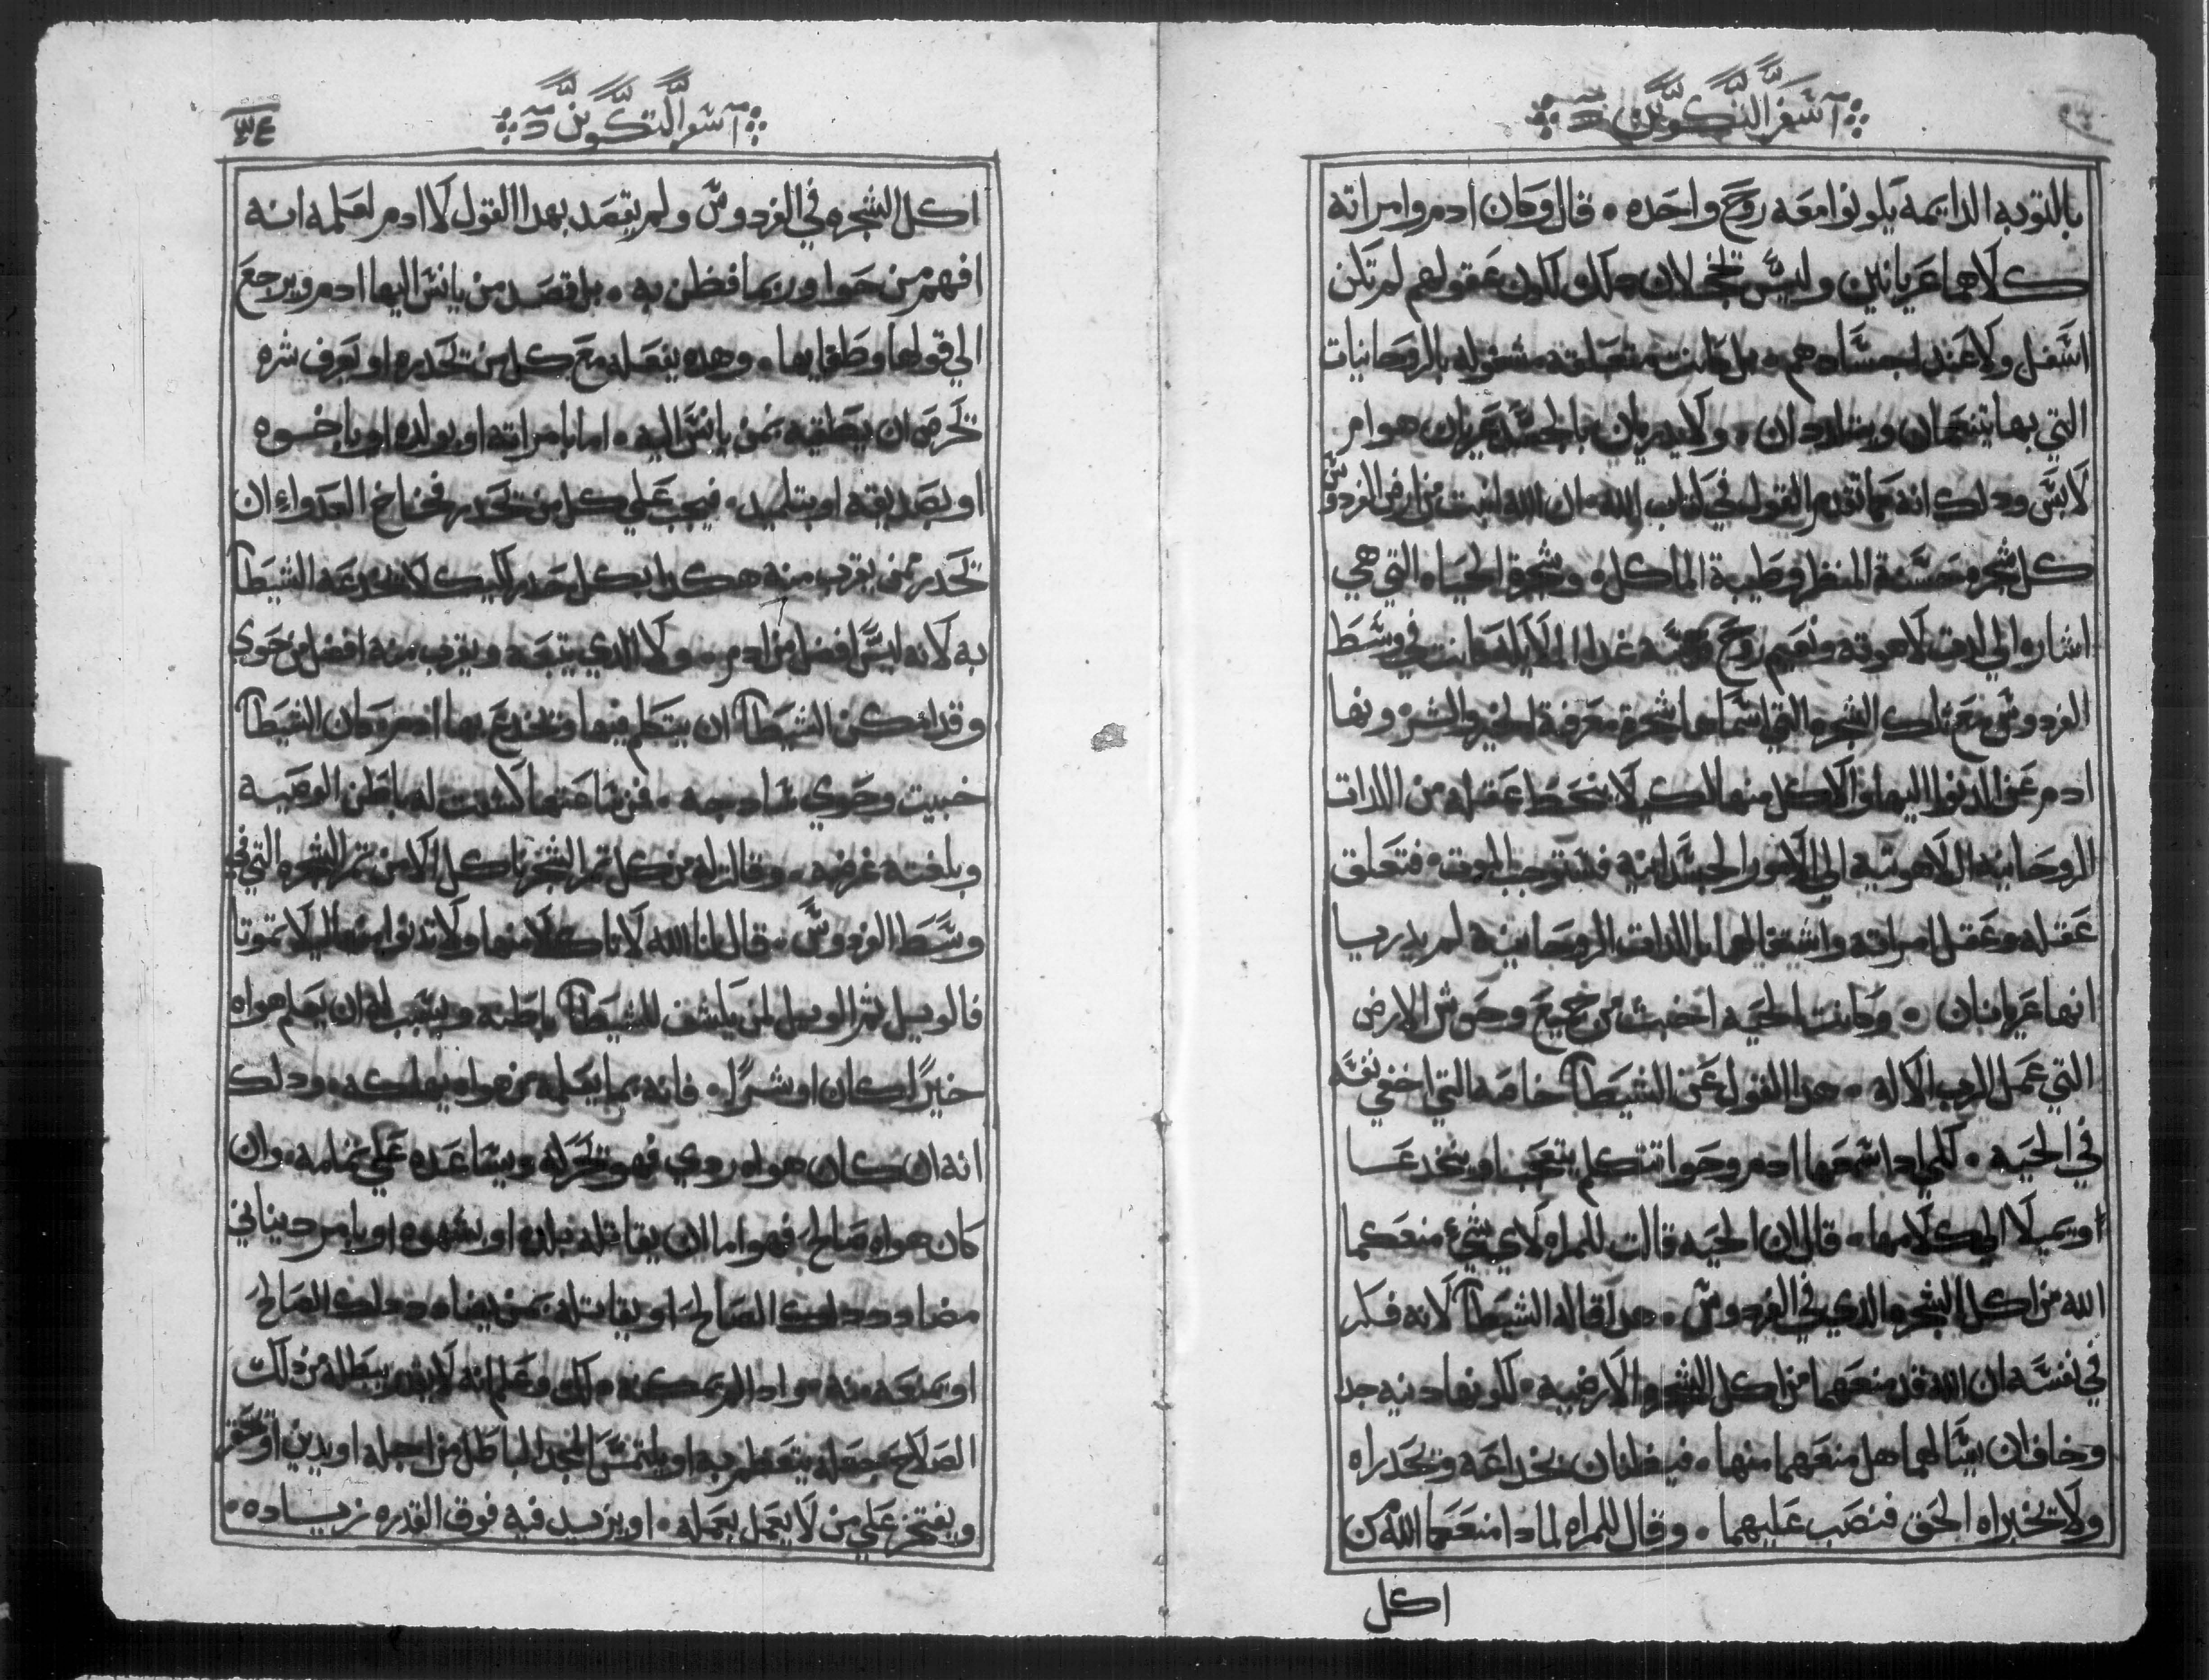 سفر التكوين
بالتوبه الدايمه يكونوا معه روح واحده • قال وكان ادم وامراته
كلاهما عريانين وليس تخجلان دلك لكون عقولهم لم تكن
اسفل ولا عند اجسادهم • بل كانت متعلقه مشغوله بالروحانيات
التي بها يتنعمان ويتلاددان • ولا يدريان بالجسد عريان هو ام
لابس ودلك انه كما تقدم القول في كتاب الله • ان الله انبت من ارض الفردوس
كل شجره حسنة المنظر وطيبة الماكل • وشجرة الحياه التي هي
اشاروا الي لاهوته ونعيم روح قدسه كانت في وسط
الفردوس مع تلك الشجره التي اسماها شجرة معرفة الخير والشر ونها
ادم عن الدنوا اليها والاكل منها لكي لا ينحط عقله من اللدات
الروحانيه اللاهوتيه الي الامور الجسدانيه فيستوجب الموت • فتعلق
عقله وعقل امراته واشتغالهما باللدات الروحانيه لم يدريا
انهما عريانان • وكانت الحيه اخبث من جميع وحوش الارض
التي عمل الرب الاله • هدا القول عن الشيطان خاصه التي اخفي نفسه
في الحيه • لكي ادا سمعها ادم وحوا تتكلم يتعجبا وينخدعا
او يميلا الي كلامها • قال ان الحيه قالت للمراه لاي شيء منعكما
الله من اكل الشجره الدي في الفردوس • هدا قاله الشيطان لانه فكر
في نفسه ان الله قد منعهما من اكل الشجره الارضيه • لكونها دنيه جد
وخاف ان يسالهما هل منعهما منها • فيفطنان بخداعه وتحدراه
ولا تخبراه الحق فنصب عليهما • وقال للمراه لمادا منعكما الله من
اكل
سفر التكوين
٣٤
اكل الشجره في الفردوس ولم يقصد بهدا القول لادم لعلمه انه
افهم من حوا وربما فطن به • بل قصد من يانس اليها ادم ويرجع
الي قولها وطغايها • وهده ينعله مع كل من تحدره او يعرف شره
تحرص ان يطغيه بمن يانس اليه • اما بامراته او بولده او باخوه
او بصديقه او بتلميد • فيجب علي كل من تحدر فخاخ العدو ان
تحدر ممن يقرب منه هكدا بكل حدر لكيلا تخدعه الشيطان
به لانه ليس افضل من ادم • ولا الدي يتبعه ويقرب منه افضل من حوي
وقد امكن الشيطان ان يتكلم فيها وتخدع بها ادم وكان الشيطان
خبيت وحوي سادجه • فمن ساعتها كشفت له باطن الوصيه
وبلغته غرضه • وقالت له من كل تمر الشجر ناكل الا من تمر الشجره التي في
وسط الفردوس • قال لنا الله لا تاكلا منها ولا تدنوا منها ليلا تموتا
فالويل ثم الويل لمن يكشف للشيطان باطنه ويسبب له ان يعلم هواه
خيرًا كان او شرًا • فانه بما يعلمه من هواه يهلكه • ودلك
انه ان كان هواه ردي فهو تحركه ويساعده علي تمامه • وان
كان هواه صالح فهو اما ان يقاتله بلده او بشهوه او بامر دنياني
مضادد دلك الصالح او يقاتله بمن يضادد دلك الصالح
او يمنعه منه • وادا لم يمكنه دلك وعلم انه لا يقدر يبطله من دلك
الصلاح يجعله يتعظم به او يلتمس المجد الباطل من اجله او يدين او يحقر
ويفتخر علي من لا يعمل بعمله • او يزيد فيه فوق القدره زياده •